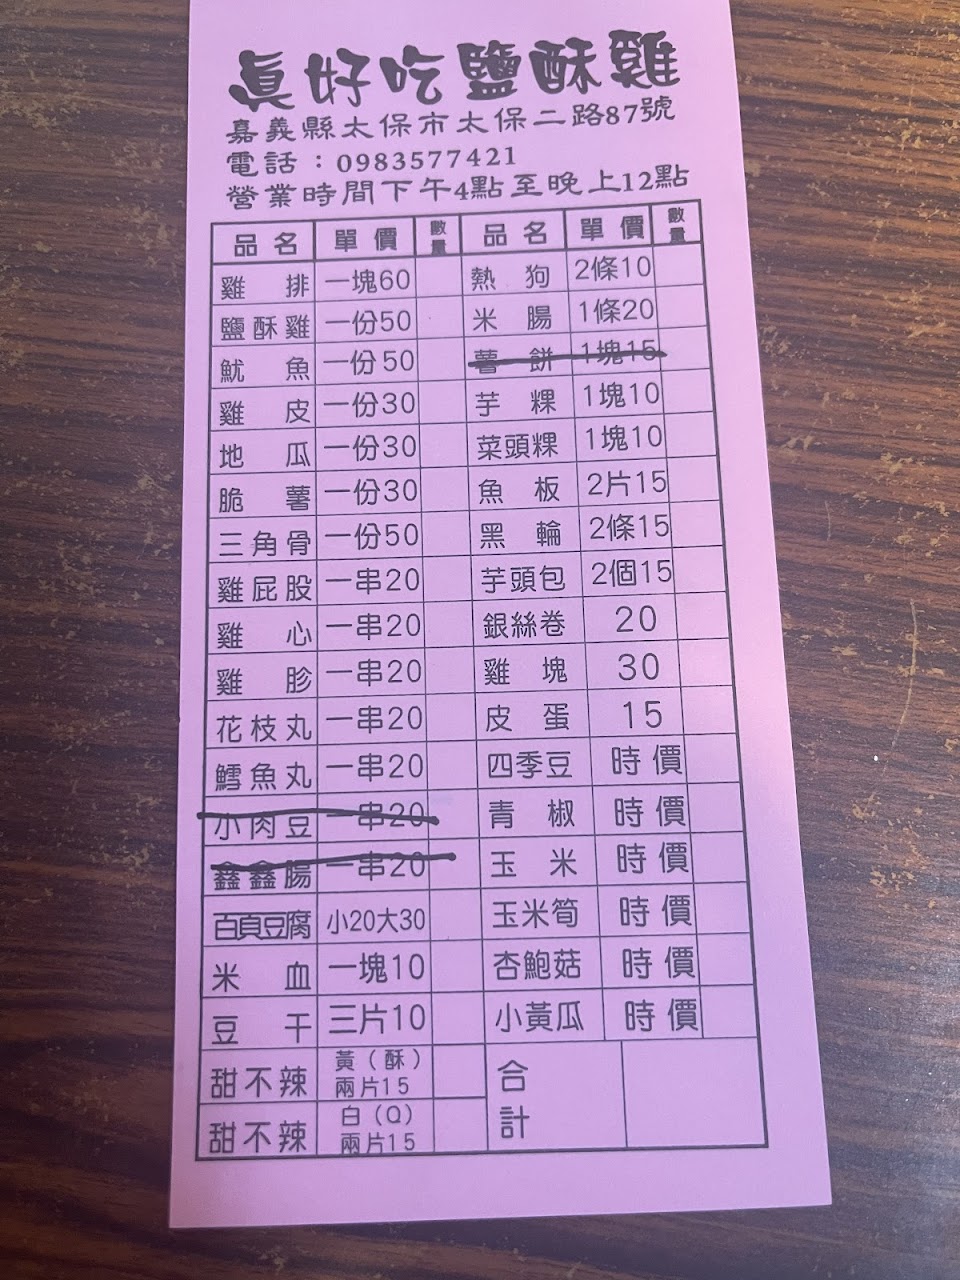 真好吃鹽酥雞
嘉義縣太保市太保二路87號
電話：0983577421
營業時間下午4點至晚上12點
品名 單價 數量 品名 單價 數量
雞排 一塊60 熱狗 2條10
鹽酥雞 一份50 米腸 1條20
魷魚 一份50 薯餅 1塊15
雞皮 一份30 芋粿 1塊10
地瓜 一份30 菜頭粿 1塊10
脆薯 一份30 魚板 2片15
三角骨 一份50 黑輪 2條15
雞屁股 一串20 芋頭包 2個15
雞心 一串20 銀絲卷 20
雞胗 一串20 雞塊 30
花枝丸 一串20 皮蛋 15
鱈魚丸 一串20 四季豆 時價
小肉豆 一串20 青椒 時價
鑫鑫腸 一串20 玉米 時價
百頁豆腐 小20大30 玉米筍 時價
米血 一塊10 杏鮑菇 時價
豆干 三片10 小黃瓜 時價
甜不辣 黃（酥）兩片15 合計
甜不辣 白（Q）兩片15